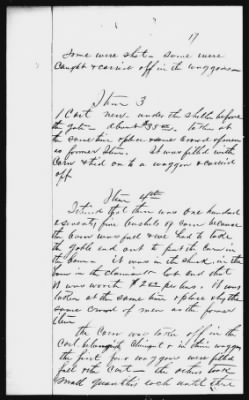 17
Some were shot — some were
caught & carried off in the waggons —
Item 3
1 Cart new. under the shelter before
the gate — about $35.00. taken at
the same time & place & same crowd of men
as former Item. It was filled with
Corn & tied on to a waggon & carried
off.
Item 4th
I think that there was one hundred
& seventy five bushels of corn because
the barn was full & we had to take
the gable end out to put the corn in
the barn. it was in the shuck, in the
barn in the
it was worth $2.00 per bus. It was
taken at the same time & place & by the
same crowd of men as the former
item
The Corn was taken off in the
Cart belonging & in their waggons
the first four waggons were filled
full & the Cart — the others took
small quantities each until there